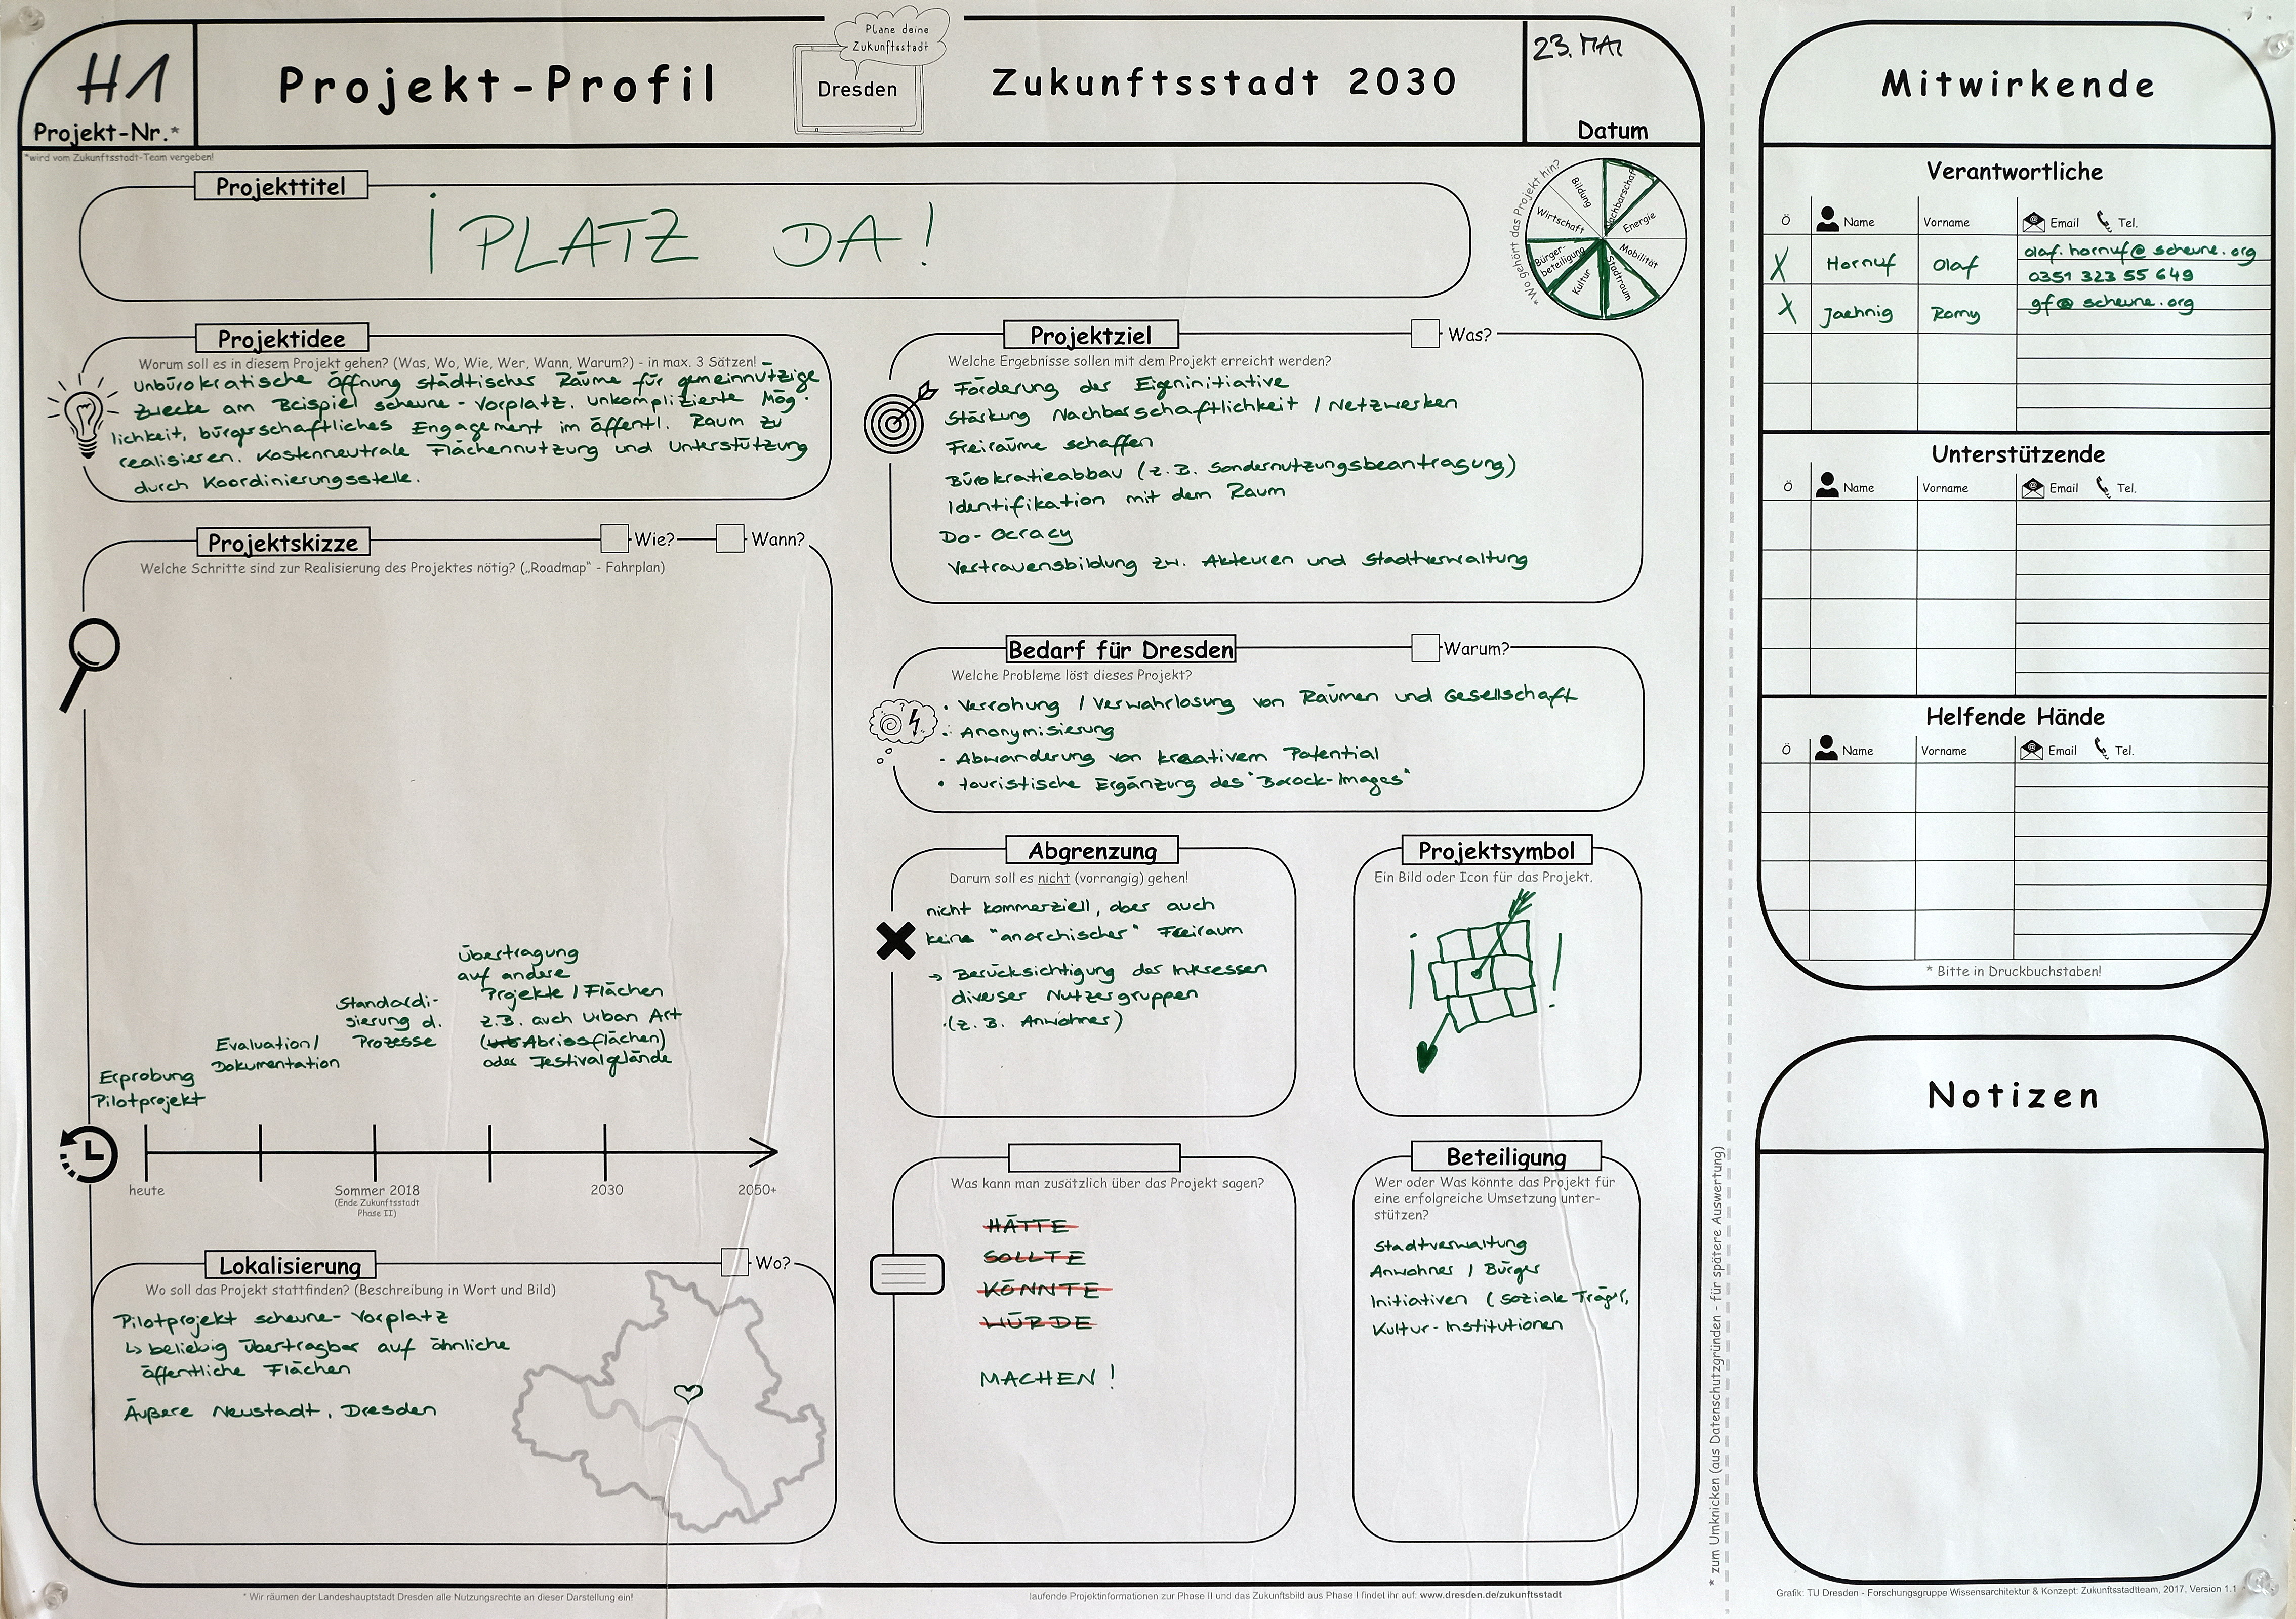 H1
Projekt-Nr.*
*wird vom Zukunftsstadt-Team vergeben!
Projekt-Profil
Plane deine
Zukunftsstadt
Dresden
Zukunftsstadt 2030
23. MAI
Datum
Projekttitel
¡ PLATZ DA !
*Wo gehört das Projekt hin?
Bildung
Nachbarschaft
Energie
Mobilität
Stadtraum
Kultur
Bürger-
beteiligung
Wirtschaft
Projektidee
Worum soll es in diesem Projekt gehen? (Was, Wo, Wie, Wer, Wann, Warum?) - in max. 3 Sätzen!
Unbürokratische Öffnung städtischer Räume für gemeinnützige
Zwecke am Beispiel scheune - Vorplatz. Unkomplizierte Mög-
lichkeit, bürgerschaftliches Engagement im öffentl. Raum zu
realisieren. Kostenneutrale Flächennutzung und Unterstützung
durch Koordinierungsstelle.
Projektskizze
Wie?
Wann?
Welche Schritte sind zur Realisierung des Projektes nötig? („Roadmap“ - Fahrplan)
Erprobung
Pilotprojekt
Evaluation/
Dokumentation
Standardi-
sierung d.
Prozesse
Übertragung
auf andere
Projekte / Flächen
z.B. auch Urban Art
(urb Abrissflächen)
oder Festivalgelände
heute
Sommer 2018
(Ende Zukunftsstadt
Phase II)
2030
2050+
Lokalisierung
Wo?
Wo soll das Projekt stattfinden? (Beschreibung in Wort und Bild)
Pilotprojekt scheune - Vorplatz
↳ beliebig übertragbar auf ähnliche
öffentliche Flächen
Äußere Neustadt, Dresden
Projektziel
Was?
Welche Ergebnisse sollen mit dem Projekt erreicht werden?
Förderung der Eigeninitiative
Stärkung Nachbarschaftlichkeit / Netzwerken
Freiräume schaffen
Bürokratieabbau (z.B. Sondernutzungsbeantragung)
Identifikation mit dem Raum
Do-Ocracy
Vertrauensbildung zw. Akteuren und Stadtverwaltung
Bedarf für Dresden
Warum?
Welche Probleme löst dieses Projekt?
• Verrohung / Verwahrlosung von Räumen und Gesellschaft
• Anonymisierung
- Abwanderung von kreativem Potential
• touristische Ergänzung des "Barock-Images"
Abgrenzung
Darum soll es nicht (vorrangig) gehen!
nicht kommerziell, aber auch
kein "anarchischer" Freiraum
→ Berücksichtigung der Interessen
diverser Nutzergruppen
(z.B. Anwohner)
Projektsymbol
Ein Bild oder Icon für das Projekt.
¡ !
Was kann man zusätzlich über das Projekt sagen?
HÄTTE
SOLLTE
KÖNNTE
WÜRDE
MACHEN !
Beteiligung
Wer oder Was könnte das Projekt für
eine erfolgreiche Umsetzung unter-
stützen?
Stadtverwaltung
Anwohner / Bürger
Initiativen (soziale Träger,
Kultur-Institutionen
* Wir räumen der Landeshauptstadt Dresden alle Nutzungsrechte an dieser Darstellung ein!
laufende Projektinformationen zur Phase II und das Zukunftsbild aus Phase I findet ihr auf: www.dresden.de/zukunftsstadt
* zum Umknicken (aus Datenschutzgründen - für spätere Auswertung)
Mitwirkende
Verantwortliche
Ö Name Vorname Email Tel.
X Hornuf Olaf olaf.hornuf@scheune.org
0351 323 55 649
X Jaehnig Romy gf@scheune.org
Unterstützende
Ö Name Vorname Email Tel.
Helfende Hände
Ö Name Vorname Email Tel.
* Bitte in Druckbuchstaben!
Notizen
Grafik: TU Dresden - Forschungsgruppe Wissensarchitektur & Konzept: Zukunftsstadtteam, 2017, Version 1.1